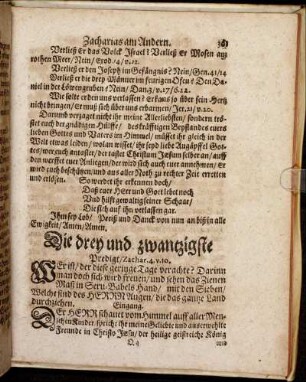 Zacharias am Andern. 363
Verließ Er das Volck Israel? Verließ Er Mosen am
rothen Meer/ Nein/ Exod/ 14/ v. 12.
Verließ er den Joseph im Gefängnis? Nein/ Gen. 41/ 14
Verließ er die drey Männer im feurigen Ofen? Den Da-
niel in der Löwengruben? Nein/ Dan. 3/ v. 27/ 6. 22.
Wie solte er den uns verlassen? Er kans jo über sein Hertz
nicht bringen/ Er muß sich über uns erbarmen/ Jer. 31/ v. 20.
Darumb verzaget nicht ihr meine Allerliebsten/ sondern trö-
stet euch der gnädigen Hülffe/ des kräfftigen Beystandes eures
lieben Gottes und Vaters im Himmel/ müsset ihr gleich in der
Welt etwas leiden/ wolan wisset/ ihr seyd liebe Augäpffel Got-
tes/ wer euch antastet/ der tastet Christum Jesum selber an/ auff
den werffet eure Anliegen/ der wird sich auch eurer annehmen/ Er
wird euch beschützen/ und aus aller Noth zu rechter Zeit erretten
und erlösen. So werdet ihr erkennen doch/
Daß euer Herr und Gott lebet noch
Und hilfft gewaltig seiner Schaar/
Die sich auf ihn verlassen gar.
Ihm sey Lob/ Preiß und Danck von nun an biß in alle
Ewigkeit/ Amen/ Amen.
Die drey und zwantzigste
Predigt/ Zachar. 4. v. 10.
WEr ist/ der diese geringe Tage verachte? Darinn
man doch sich wird freuen/ und sehen das Zienen
Maß in Seru-Babels Hand/ mit den Sieben/
Welche sind des HERRN Augen/ die das gantze Land
durchziehen.
Eingang.
DEr HERR schauet vom Himmel auff aller Men-
schen Kinder/ spricht/ ihr meine Geliebte und auserwehlte
Freunde in Christo Jesu/ der heilige geistreiche König
und